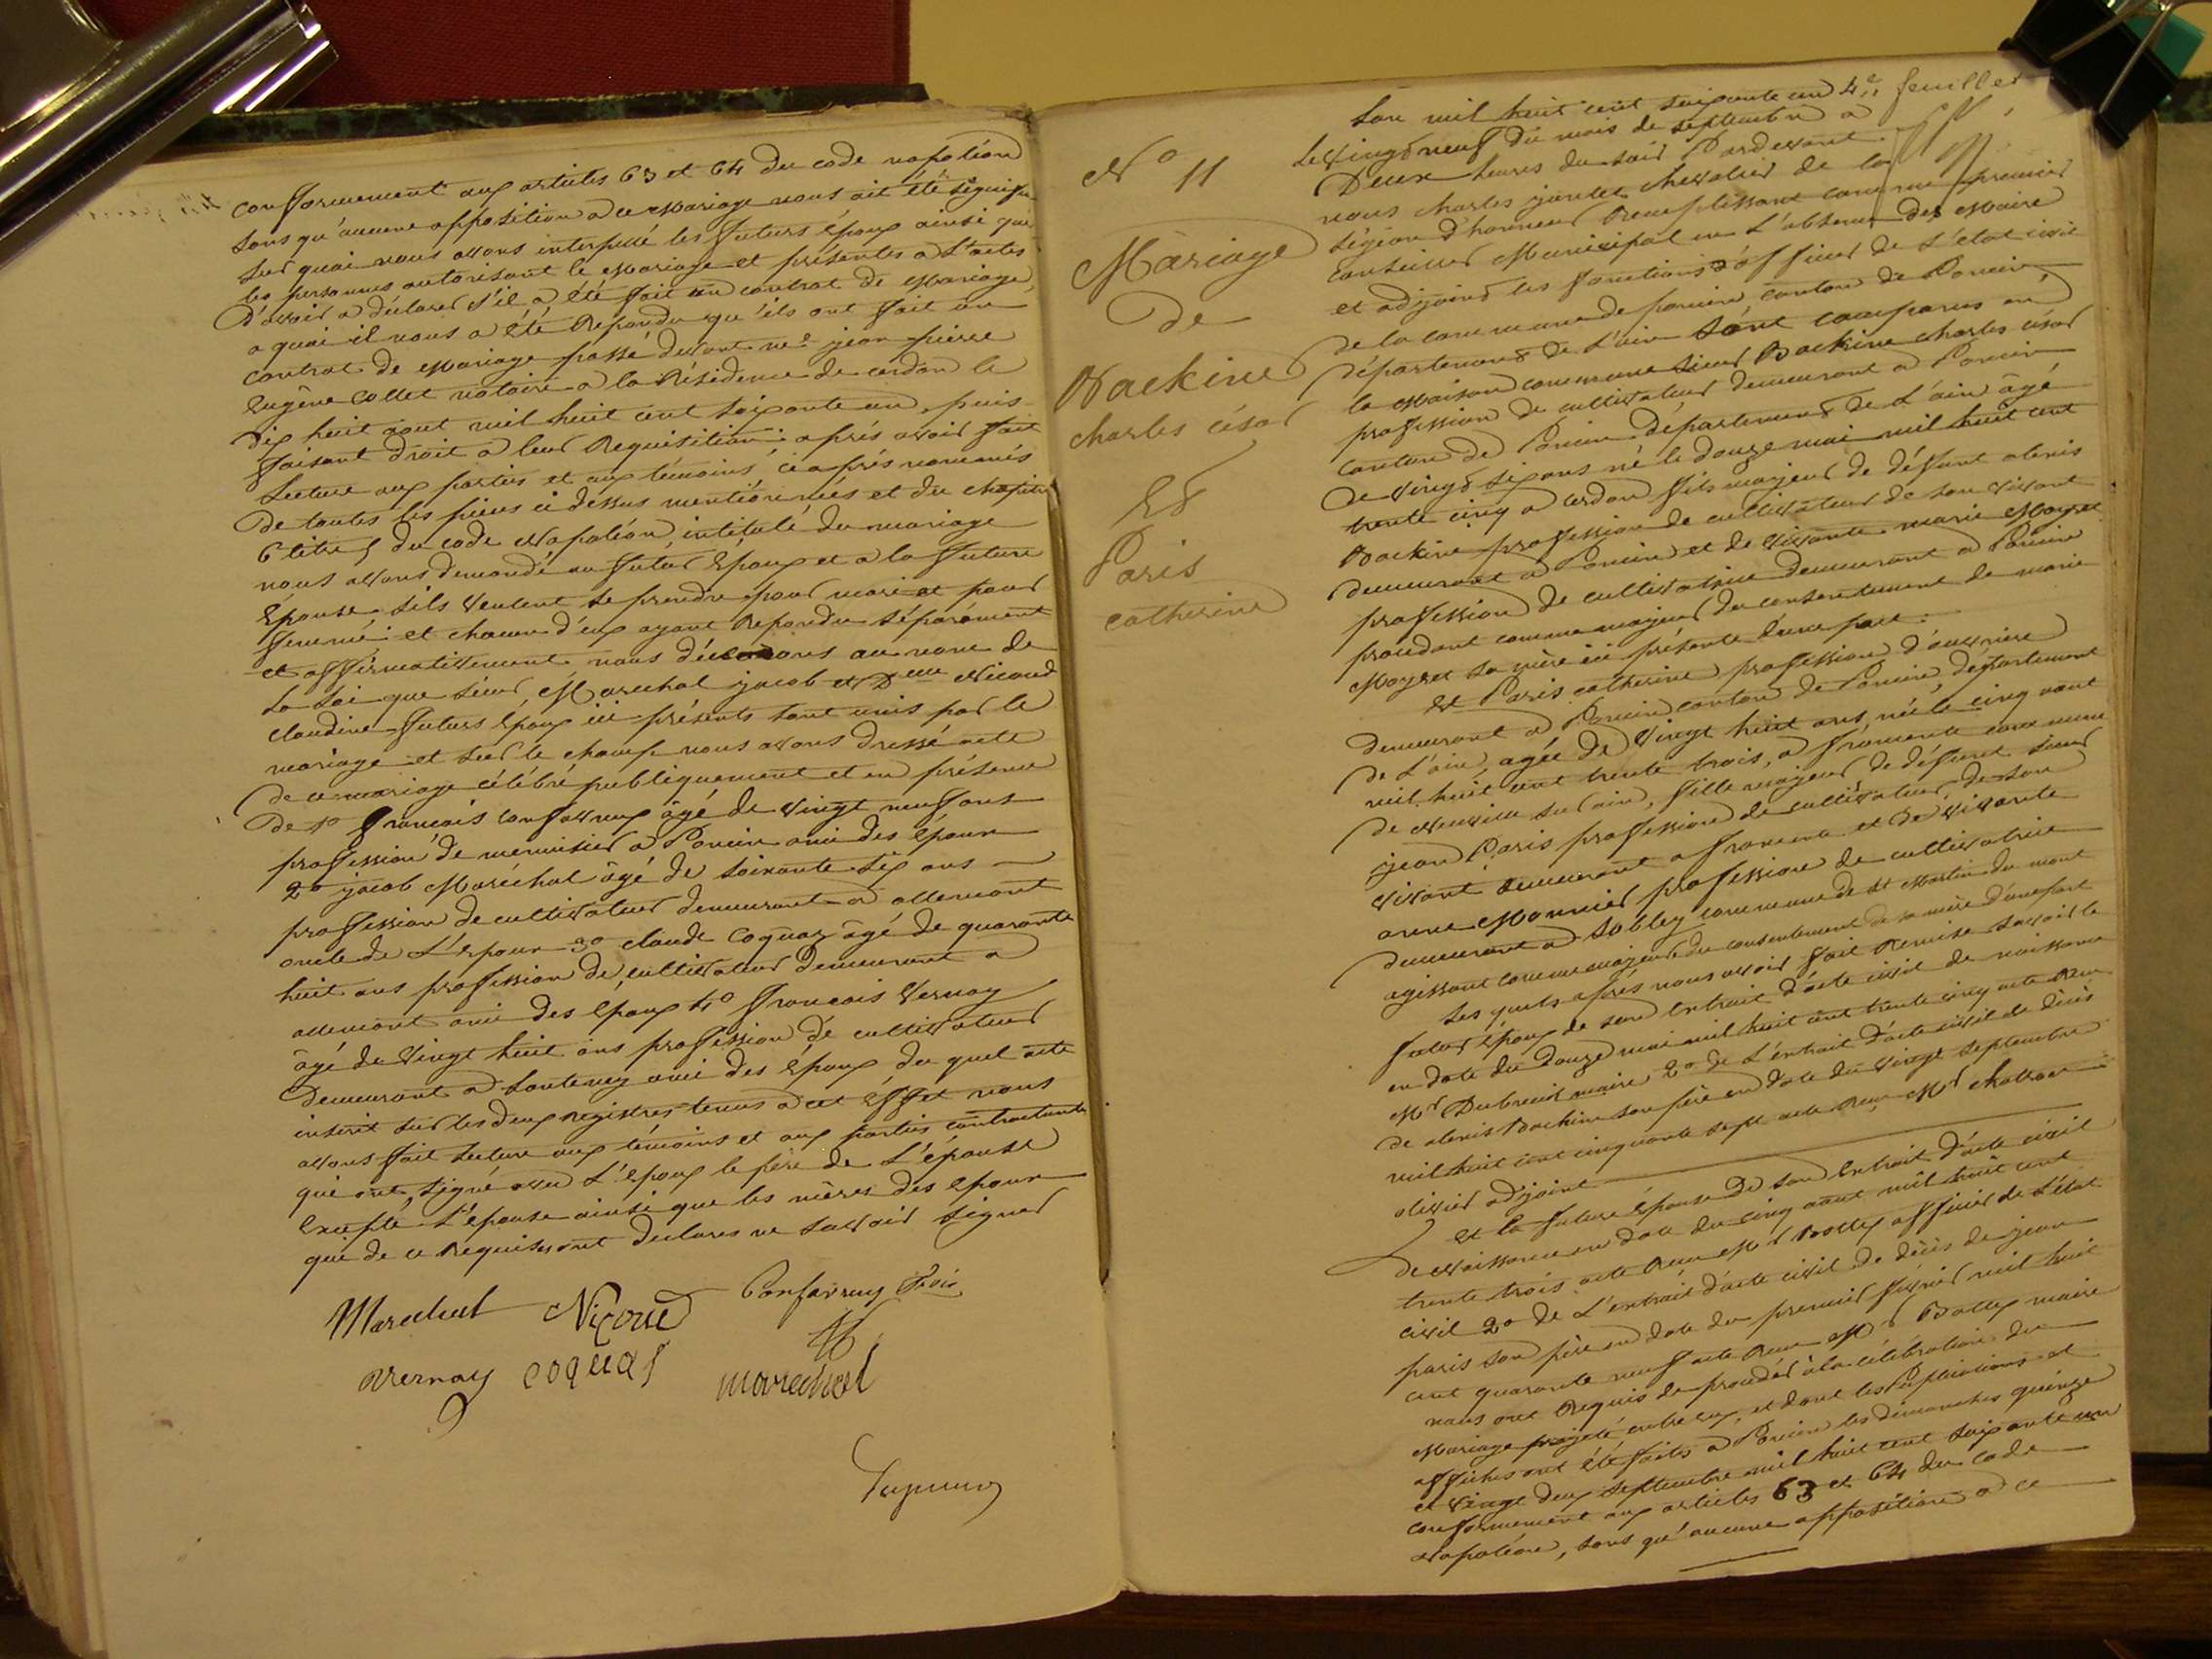 conformement aux articles 63 et 64 du code napoléon
sans qu'aucune opposition a ce Mariage nous ait été signifié
sur quoi nous avons interpellé les futurs époux ainsi que
les personnes autorisant le Mariage et présentes a l'actes
d'avoir a déclarer s'il a été fait un contrat de Mariage,
a quoi il nous a été Repondu qu'ils ont fait un
contrat de Mariage passé devant me jean pierre
Eugène Collet notaire a la Résidence de cerdon le
dix huit aout mil huit cent soixante un, puis
faisant droit a leur Requisition: après avoir fait
lecture aux parties et aux témoins, ci après nommés
de toutes les pièces ci dessus mentionnées et du chapitre
6 titre 5 du code Napoléon, intitulé du mariage
nous avons demandé au futur Epoux et a la future
Epouse s'ils veulent se prendre pour mari et pour
femme: et chacun d'eux ayant Repondu séparément
et affirmativement nous déclarons au nom de
La Loi que sieur Marechal jacob et Delle Nicoud
claudine futurs époux ici présents sont unis par le
mariage et sur le champ nous avons dressé acte
de ce mariage célébré publiquement et en présence
de 1o françois confavreux âgé de vingt neuf ans
profession de menuisier a Poncin ami des époux
2o jacob Maréchal âgé de soixante six ans
profession de cultivateur demeurant a allemont
oncle de L'époux 3o claude Coquaz âgé de quarante
huit ans profession de cultivateur demeurant a
allemont ami des époux 4o françois Vernay
âgé de vingt huit ans profession de cultivateur
demeurant a ami des Epoux du quel acte
inscrit sur les deux registres tenus a cet Effet nous
avons fait lecture aux témoins et aux parties contractantes
qui ont signé avec L'époux le père de L'épouse
Excepté L'épouse ainsi que les mères des époux
qui de ce Requises ont declares ne savoir signer
Marechal Nicoud Confavreux fois
Vernay coquas marechal
N° 11
Mariage
de
Nackine
charles césar
Et
Paris
catherine
Lan mil huit cent soixante un 4e feuillet
Le vingt neuf du mois de septembre a
Deux heures du soir Pardevant
nous charles chevalier de la
Légion d'honneur Remplissant comme premier
conseiller Municipal en L'absence des Maire
et adjoint les fonctions d'officier de L'état civil
de la commune de poncin, canton de Poncin,
département de L'ain sont comparus en
la Maison commune sieur Backine charles césar
profession de cultivateur demeurant a Poncin
canton de Poncin département de L'ain âgé
de vingt six ans né le douze mai mil huit cent
trente cinq a cerdon fils majeur de défunt alexis
Backine profession de cultivateur de son vivant
demeurant a Poncin et de vivante marie Moyret
profession de cultivatrice demeurant a Poncin
procédant comme majeur du consentement de marie
Moyret sa mère ici présente d'une part.
et Paris catherine profession d'ouvrière
demeurant a Poncin canton de Poncin, département
de L'ain, agée de vingt huit ans, née le cinq aout
mil huit cent trente trois, a fromente commune
de Neuville sur ain, fille majeur de défunt sieur
jean Paris profession de cultivateur de son
vivant demeurant a fromente et de vivante
anne Monnier profession de cultivatrice
demeurant a Sobley commune de St Martin du mont
agissant comme majeure du consentement de sa mère d'une part
Les quels après nous avoir fait Remise savoir le
futur époux de son Extrait d'acte civil de naissance
en date du douze mai mil huit cent trente cinq acte Reçu
Mr Dubreuil maire 2o de L'extrait d'acte civil de décès
de alexis Backine son père en date du vingt septembre
mil huit cent cinquante sept acte Reçu Mr
olivier adjoint
et la future épouse de son Extrait d'acte civil
de Naissance en date du cinq aout mil huit cent
trente trois acte Reçu Mr Bottex officier de L'état
civil 2o de L'extrait d'acte civil de décès de jean
paris son père en date du premier février mil huit
cent quarante neuf acte Reçu Mr Bottex maire
nous ont Requis de procéder à la célébration du
Mariage projeté entre eux, et dont les Publications et
affiches ont été faites a Poncin les dimanches quinze
et vingt deux septembre mil huit cent soixante un
conformement aux articles 63 et 64 du code
Napoléon, sans qu'aucune opposition a ce